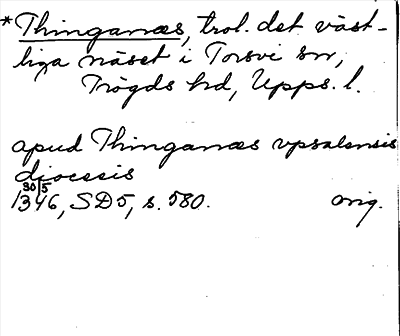 *Thinganæs, trol. det väst-
liga näset i Torsvi sn,
Trögds hd, Upps. l.
apud Thinganæs vpsalensis
diocesis
30/5
1346, SD5, s. 580. orig.